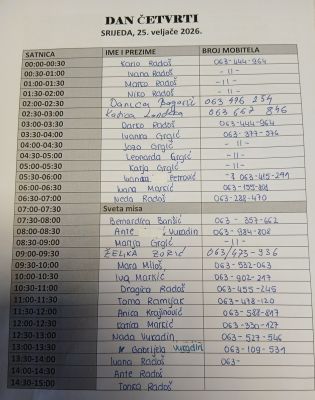 DAN ČETVRTI
SRIJEDA, 25. veljače 2026.
SATNICA IME I PREZIME BROJ MOBITELA
00:00-00:30 Kario Radoš 063-444-964
00:30-01:00 Ivana Radoš -11-
01:00-01:30 Marco Radoš -11-
01:30-02:00 Niko Radoš -11-
02:00-02:30 Danica Bagarić 063 496 254
02:30-03:00 Katica 063 667 846
03:00-03:30 Darko Radoš 063-444-964
03:30-04:00 Ivanka Grgić 063-377-576
04:00-04:30 Jozo Grgić -11-
04:30-05:00 Leonarda Grgić -11-
05:00-05:30 Katja Grgić -11-
05:30-06:00 Ivanda Petrović 063-415-291
06:00-06:30 Ivana Markić 063-155-808
06:30-07:00 Neda Radoš 063-288-470
07:00-07:30 Sveta misa
07:30-08:00 Bernardica Banšić 063-357-662
08:00-08:30 Ante Vuradin 063-984-808
08:30-09:00 Marija Grgić -11-
09:00-09:30 ŽELJKA ZORIĆ 063/473-936
09:30-10:00 Mara Miloš 063-532-063
10:00-10:30 Iva Markić 063-902-247
10:30-11:00 Dragica Radoš 063-455-245
11:00-11:30 Toma Ramljak 063-478-120
11:30-12:00 Anica Krajinović 063-588-817
12:00-12:30 Karica Markić 063-330-127
12:30-13:00 Nada Vuradin 063-527-546
13:00-13:30 Gabrijela Vuradin 063-109-531
13:30-14:00 Ivana Radoš 063-
14:00-14:30 Ante Radoš
14:30-15:00 Tonka Radoš